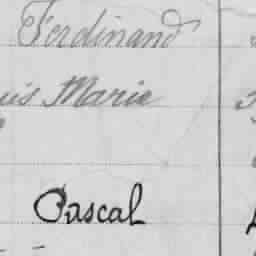 Ferdinand
uis Marie
Pascal